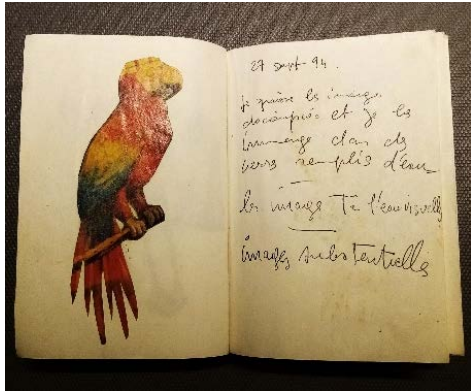 27 sept 94.
je les images
découpées et je les
immerge dans des
verres remplis d'eau
les images l'eau visuelle
images substantielles